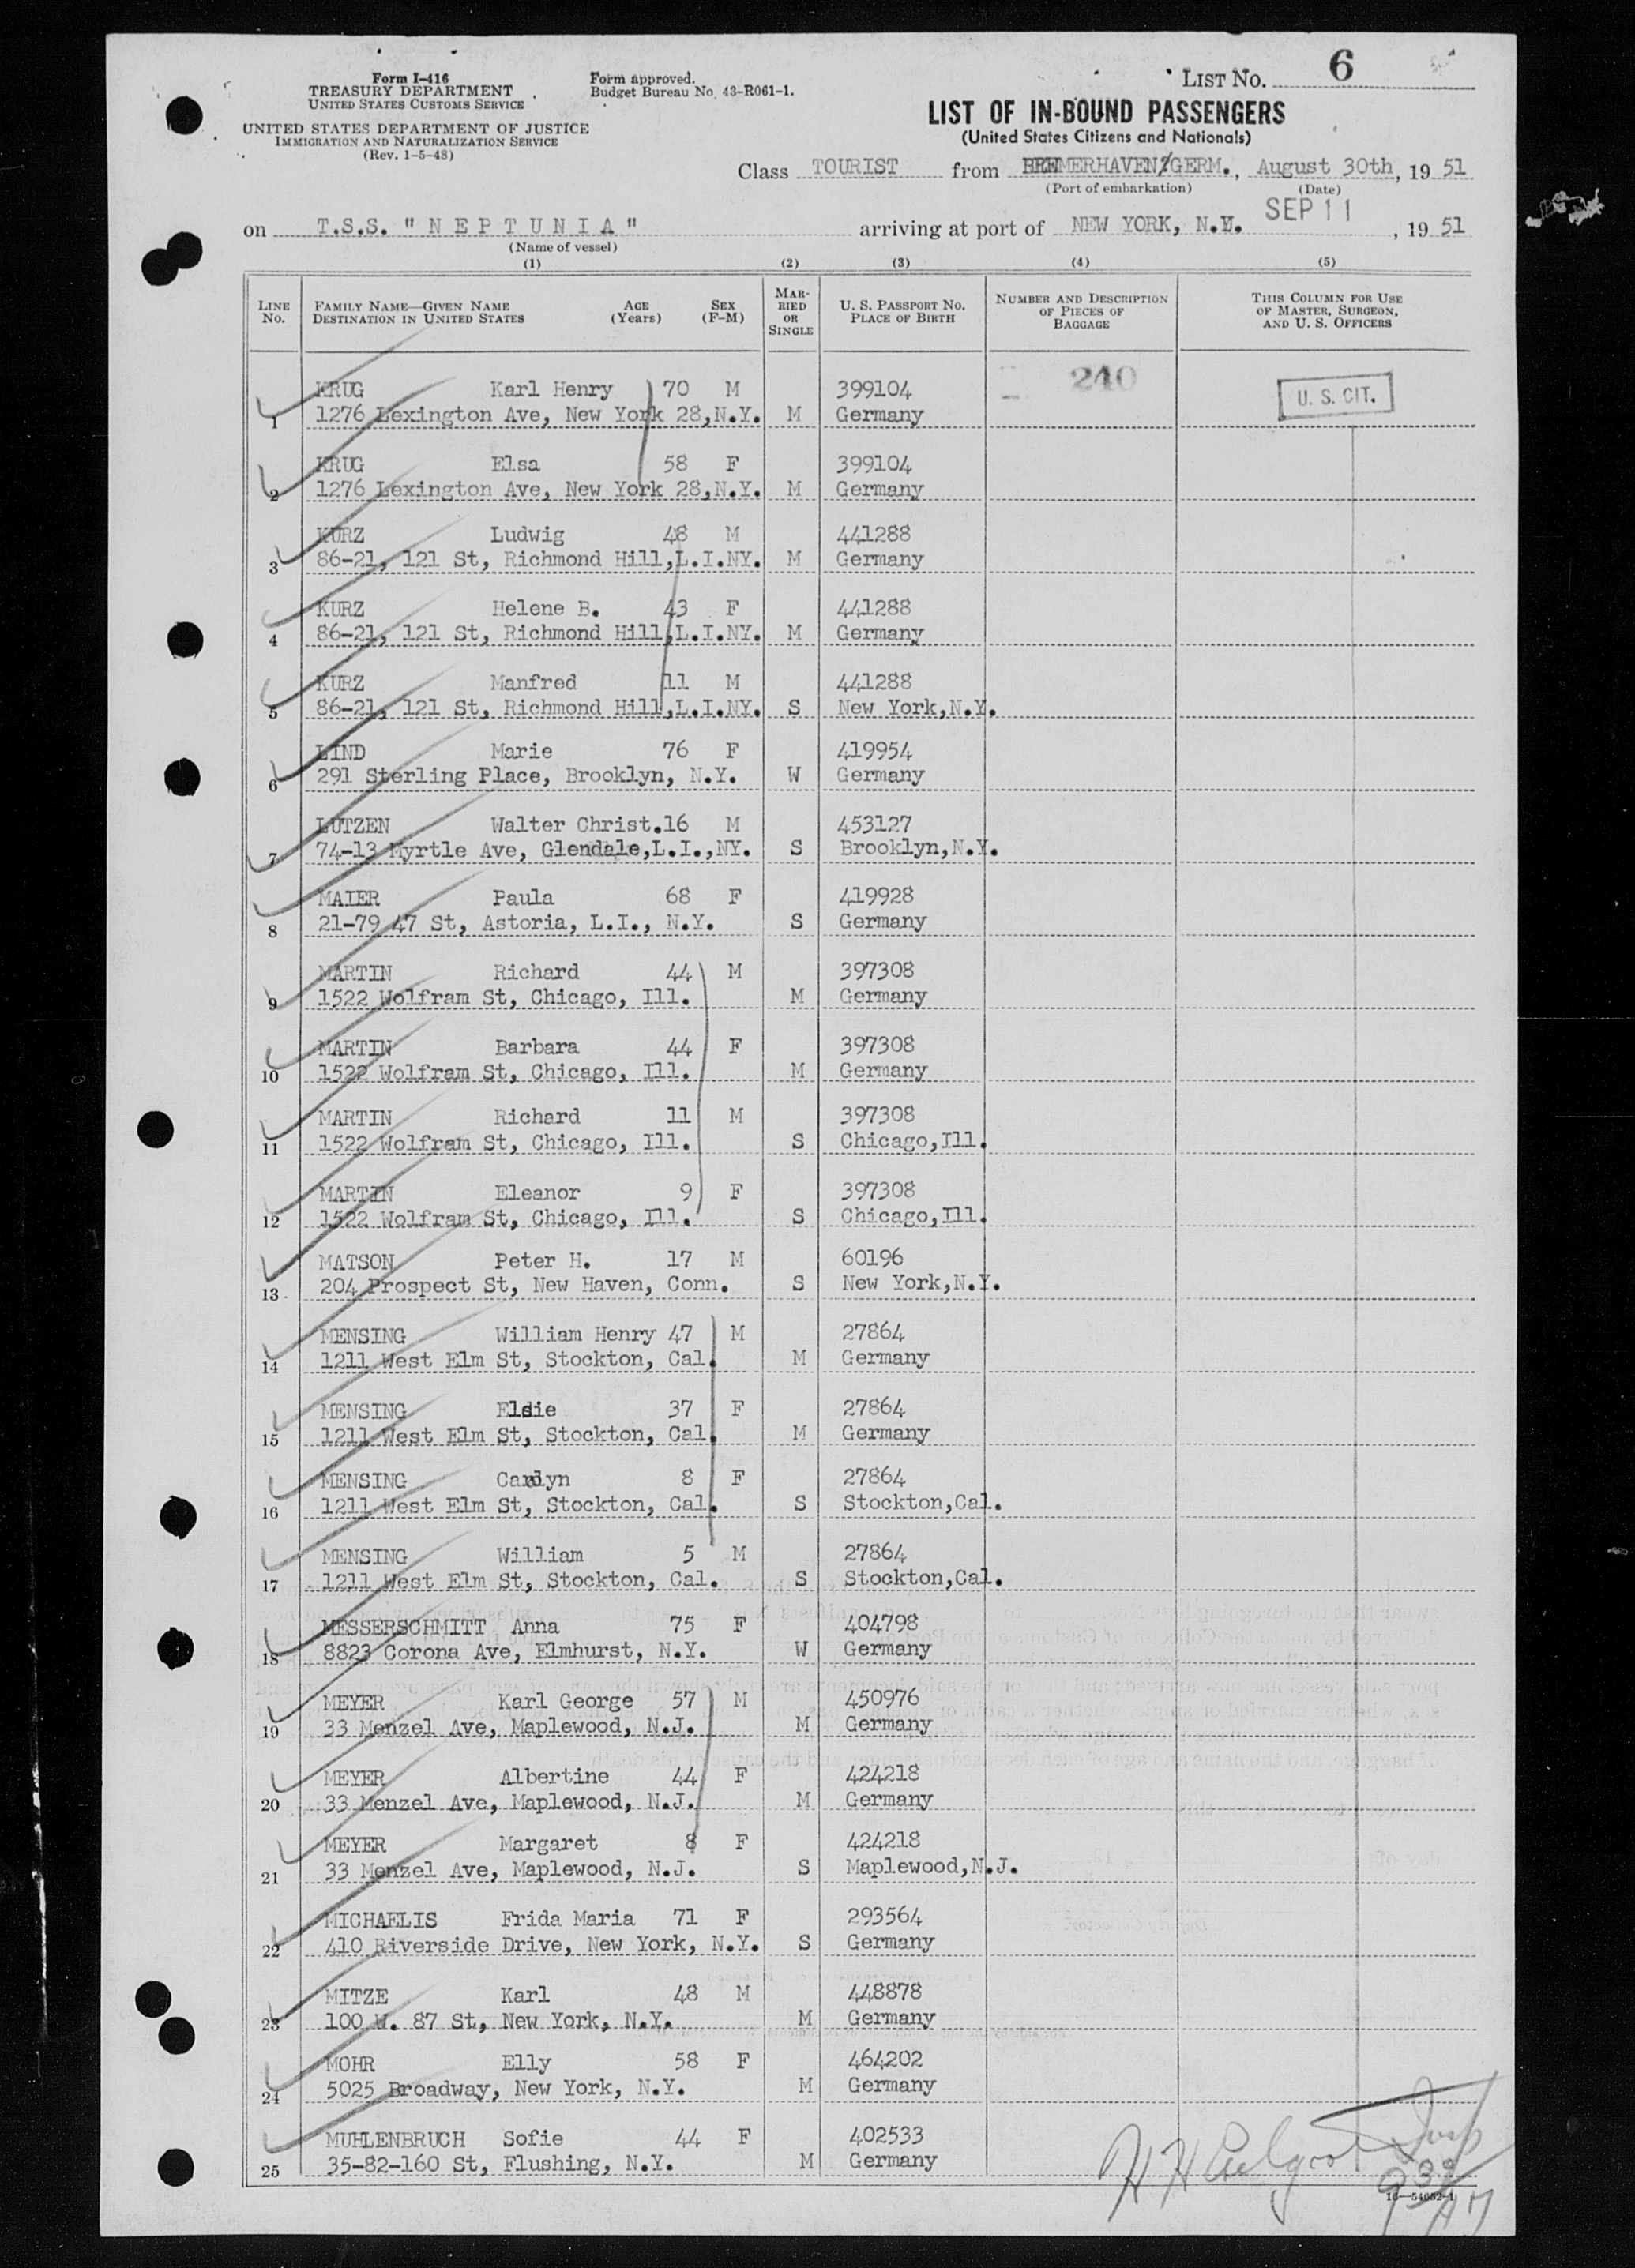 Form I-416
TREASURY DEPARTMENT
UNITED STATES CUSTOMS SERVICE
UNITED STATES DEPARTMENT OF JUSTICE
IMMIGRATION AND NATURALIZATION SERVICE
(Rev. 1-5-48)
Form approved.
Budget Bureau No. 43-R061-1.
LIST NO. 6
LIST OF IN-BOUND PASSENGERS
(United States Citizens and Nationals)
Class TOURIST from BREMERHAVEN/GERM., August 30th, 19 51
(Port of embarkation) (Date)
on T.S.S. "NEPTUNIA" arriving at port of NEW YORK, N.Y. SEP 11, 19 51
(Name of vessel)
(1) (2) (3) (4) (5)
LINE NO. FAMILY NAME—GIVEN NAME DESTINATION IN UNITED STATES AGE (Years) SEX (F-M) MARRIED OR SINGLE U. S. PASSPORT NO. PLACE OF BIRTH NUMBER AND DESCRIPTION OF PIECES OF BAGGAGE THIS COLUMN FOR USE OF MASTER, SURGEON, AND U. S. OFFICERS
KRUG Karl Henry 70 M 399104 240 U. S. CIT.
1 1276 Lexington Ave, New York 28,N.Y. M Germany
KRUG Elsa 58 F 399104
2 1276 Lexington Ave, New York 28,N.Y. M Germany
KURZ Ludwig 48 M 441288
3 86-21, 121 St, Richmond Hill,L.I.NY. M Germany
KURZ Helene B. 43 F 441288
4 86-21, 121 St, Richmond Hill,L.I.NY. M Germany
KURZ Manfred 11 M 441288
5 86-21, 121 St, Richmond Hill,L.I.NY. S New York,N.Y.
LIND Marie 76 F 419954
6 291 Sterling Place, Brooklyn, N.Y. W Germany
LUTZEN Walter Christ.16 M 453127
7 74-13 Myrtle Ave, Glendale,L.I.,NY. S Brooklyn,N.Y.
MAIER Paula 68 F 419928
8 21-79 47 St, Astoria, L.I., N.Y. S Germany
MARTIN Richard 44 M 397308
9 1522 Wolfram St, Chicago, Ill. M Germany
MARTIN Barbara 44 F 397308
10 1522 Wolfram St, Chicago, Ill. M Germany
MARTIN Richard 11 M 397308
11 1522 Wolfram St, Chicago, Ill. S Chicago,Ill.
MARTIN Eleanor 9 F 397308
12 1522 Wolfram St, Chicago, Ill. S Chicago,Ill.
MATSON Peter H. 17 M 60196
13 204 Prospect St, New Haven, Conn. S New York,N.Y.
MENSING William Henry 47 M 27864
14 1211 West Elm St, Stockton, Cal. M Germany
MENSING Elsie 37 F 27864
15 1211 West Elm St, Stockton, Cal. M Germany
MENSING Carolyn 8 F 27864
16 1211 West Elm St, Stockton, Cal. S Stockton,Cal.
MENSING William 5 M 27864
17 1211 West Elm St, Stockton, Cal. S Stockton,Cal.
MESSERSCHMITT Anna 75 F 404798
18 8823 Corona Ave, Elmhurst, N.Y. W Germany
MEYER Karl George 57 M 450976
19 33 Menzel Ave, Maplewood, N.J. M Germany
MEYER Albertine 44 F 424218
20 33 Menzel Ave, Maplewood, N.J. M Germany
MEYER Margaret 8 F 424218
21 33 Menzel Ave, Maplewood, N.J. S Maplewood,N.J.
MICHAELIS Frida Maria 71 F 293564
22 410 Riverside Drive, New York, N.Y. S Germany
MITZE Karl 48 M 448878
23 100 W. 87 St, New York, N.Y. M Germany
MOHR Elly 58 F 464202
24 5025 Broadway, New York, N.Y. M Germany
MUHLENBRUCH Sofie 44 F 402533
25 35-82-160 St, Flushing, N.Y. M Germany
16—54652-1